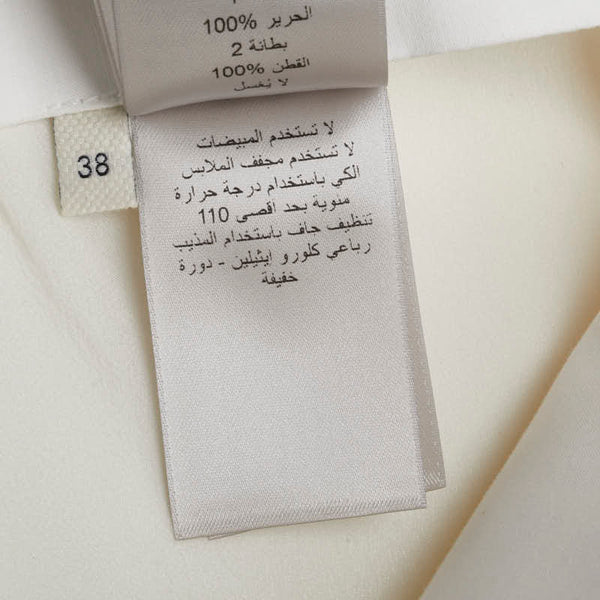 الحرير 100%
بطانة 2
القطن 100%
لا يُغسل
38
لا تستخدم المبيضات
لا تستخدم مجفف الملابس
الكي باستخدام درجة حرارة
مئوية بحد اقصى 110
تنظيف جاف باستخدام المذيب
رباعي كلورو ايثيلين - دورة
خفيفة